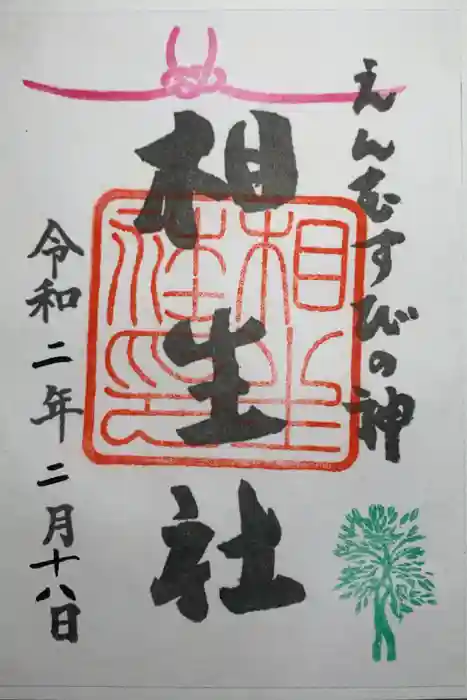 えんむすびの神
相生社
令和二年二月十八日